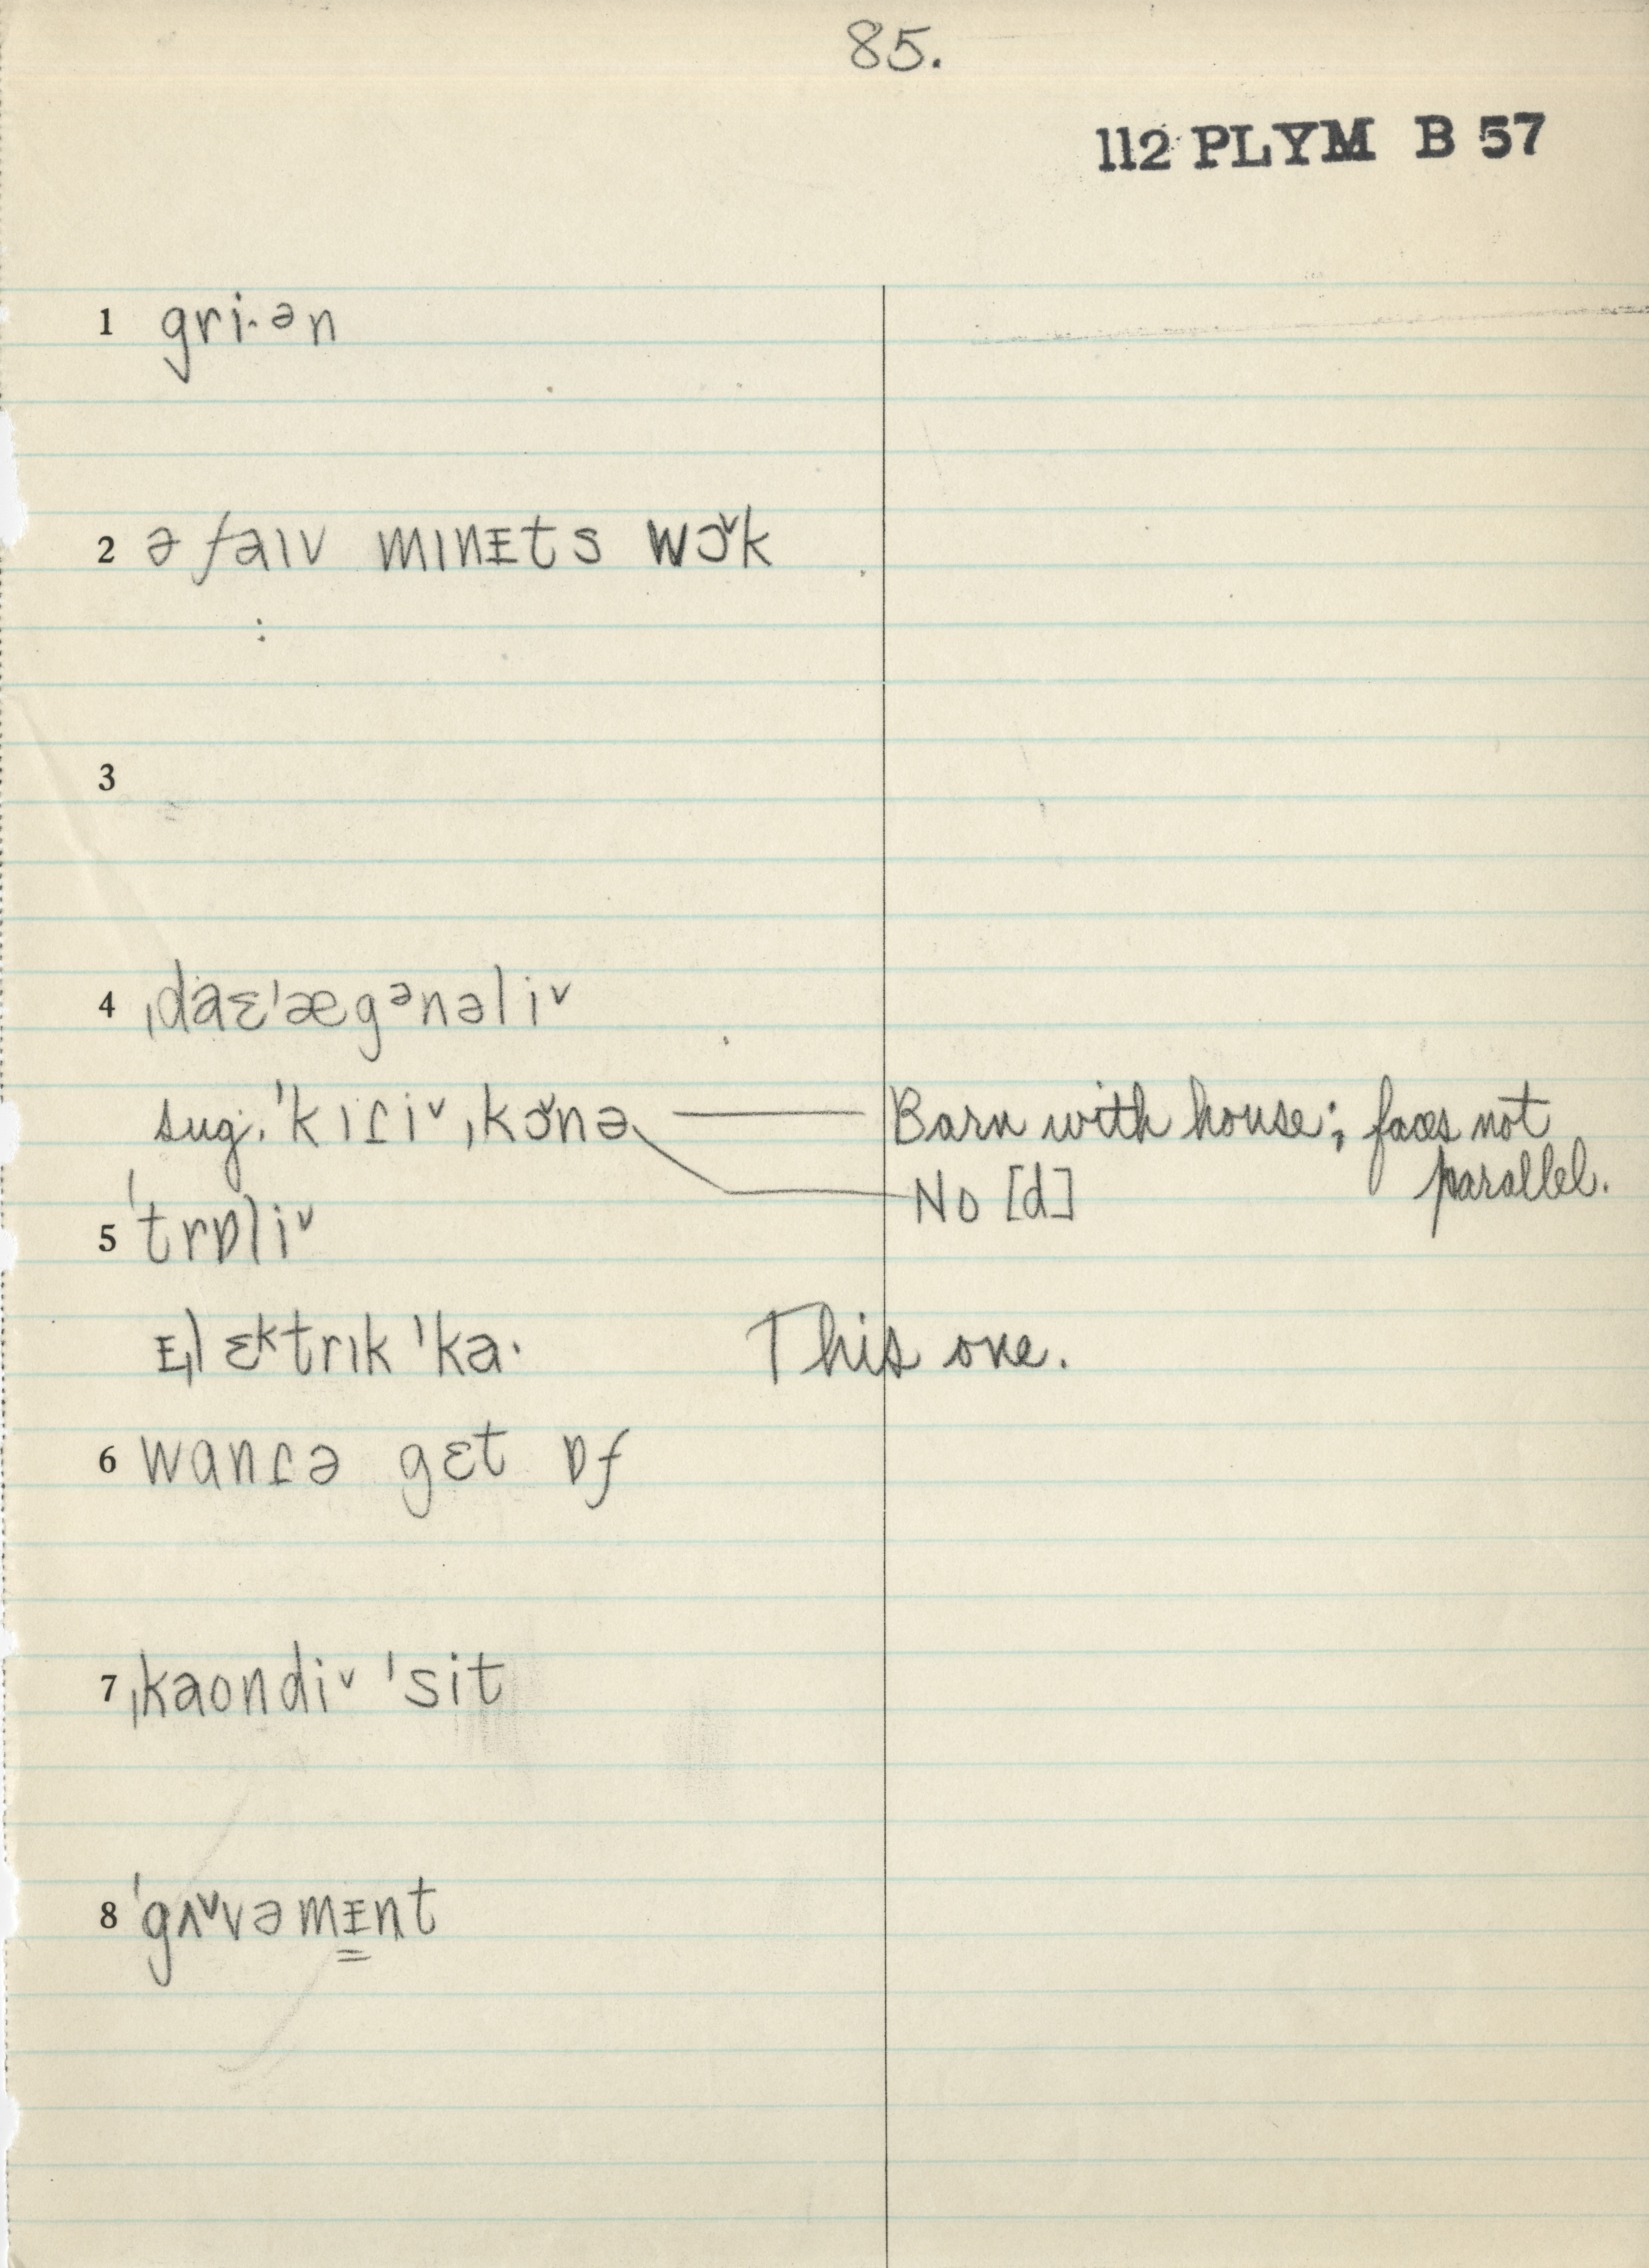 85.
112 PLYM B 57
1 gri·ən
2 ə faɪv mɪnᴇts wɔˇk
:
3
4 ˌdaɛˈægᵊnəliˇ
sug. ˈkɪɾiˇˌkɔˇnə — Barn with house; faces not parallel.
No [d]
5 ˈtrɒliˇ
ᴇˌlɛᵏtrɪk ˈka· This one.
6 wanɾə gɛt ɒf
7 ˌkaondiˇ ˈsit
8 ˈgʌˇvəmᴇnt